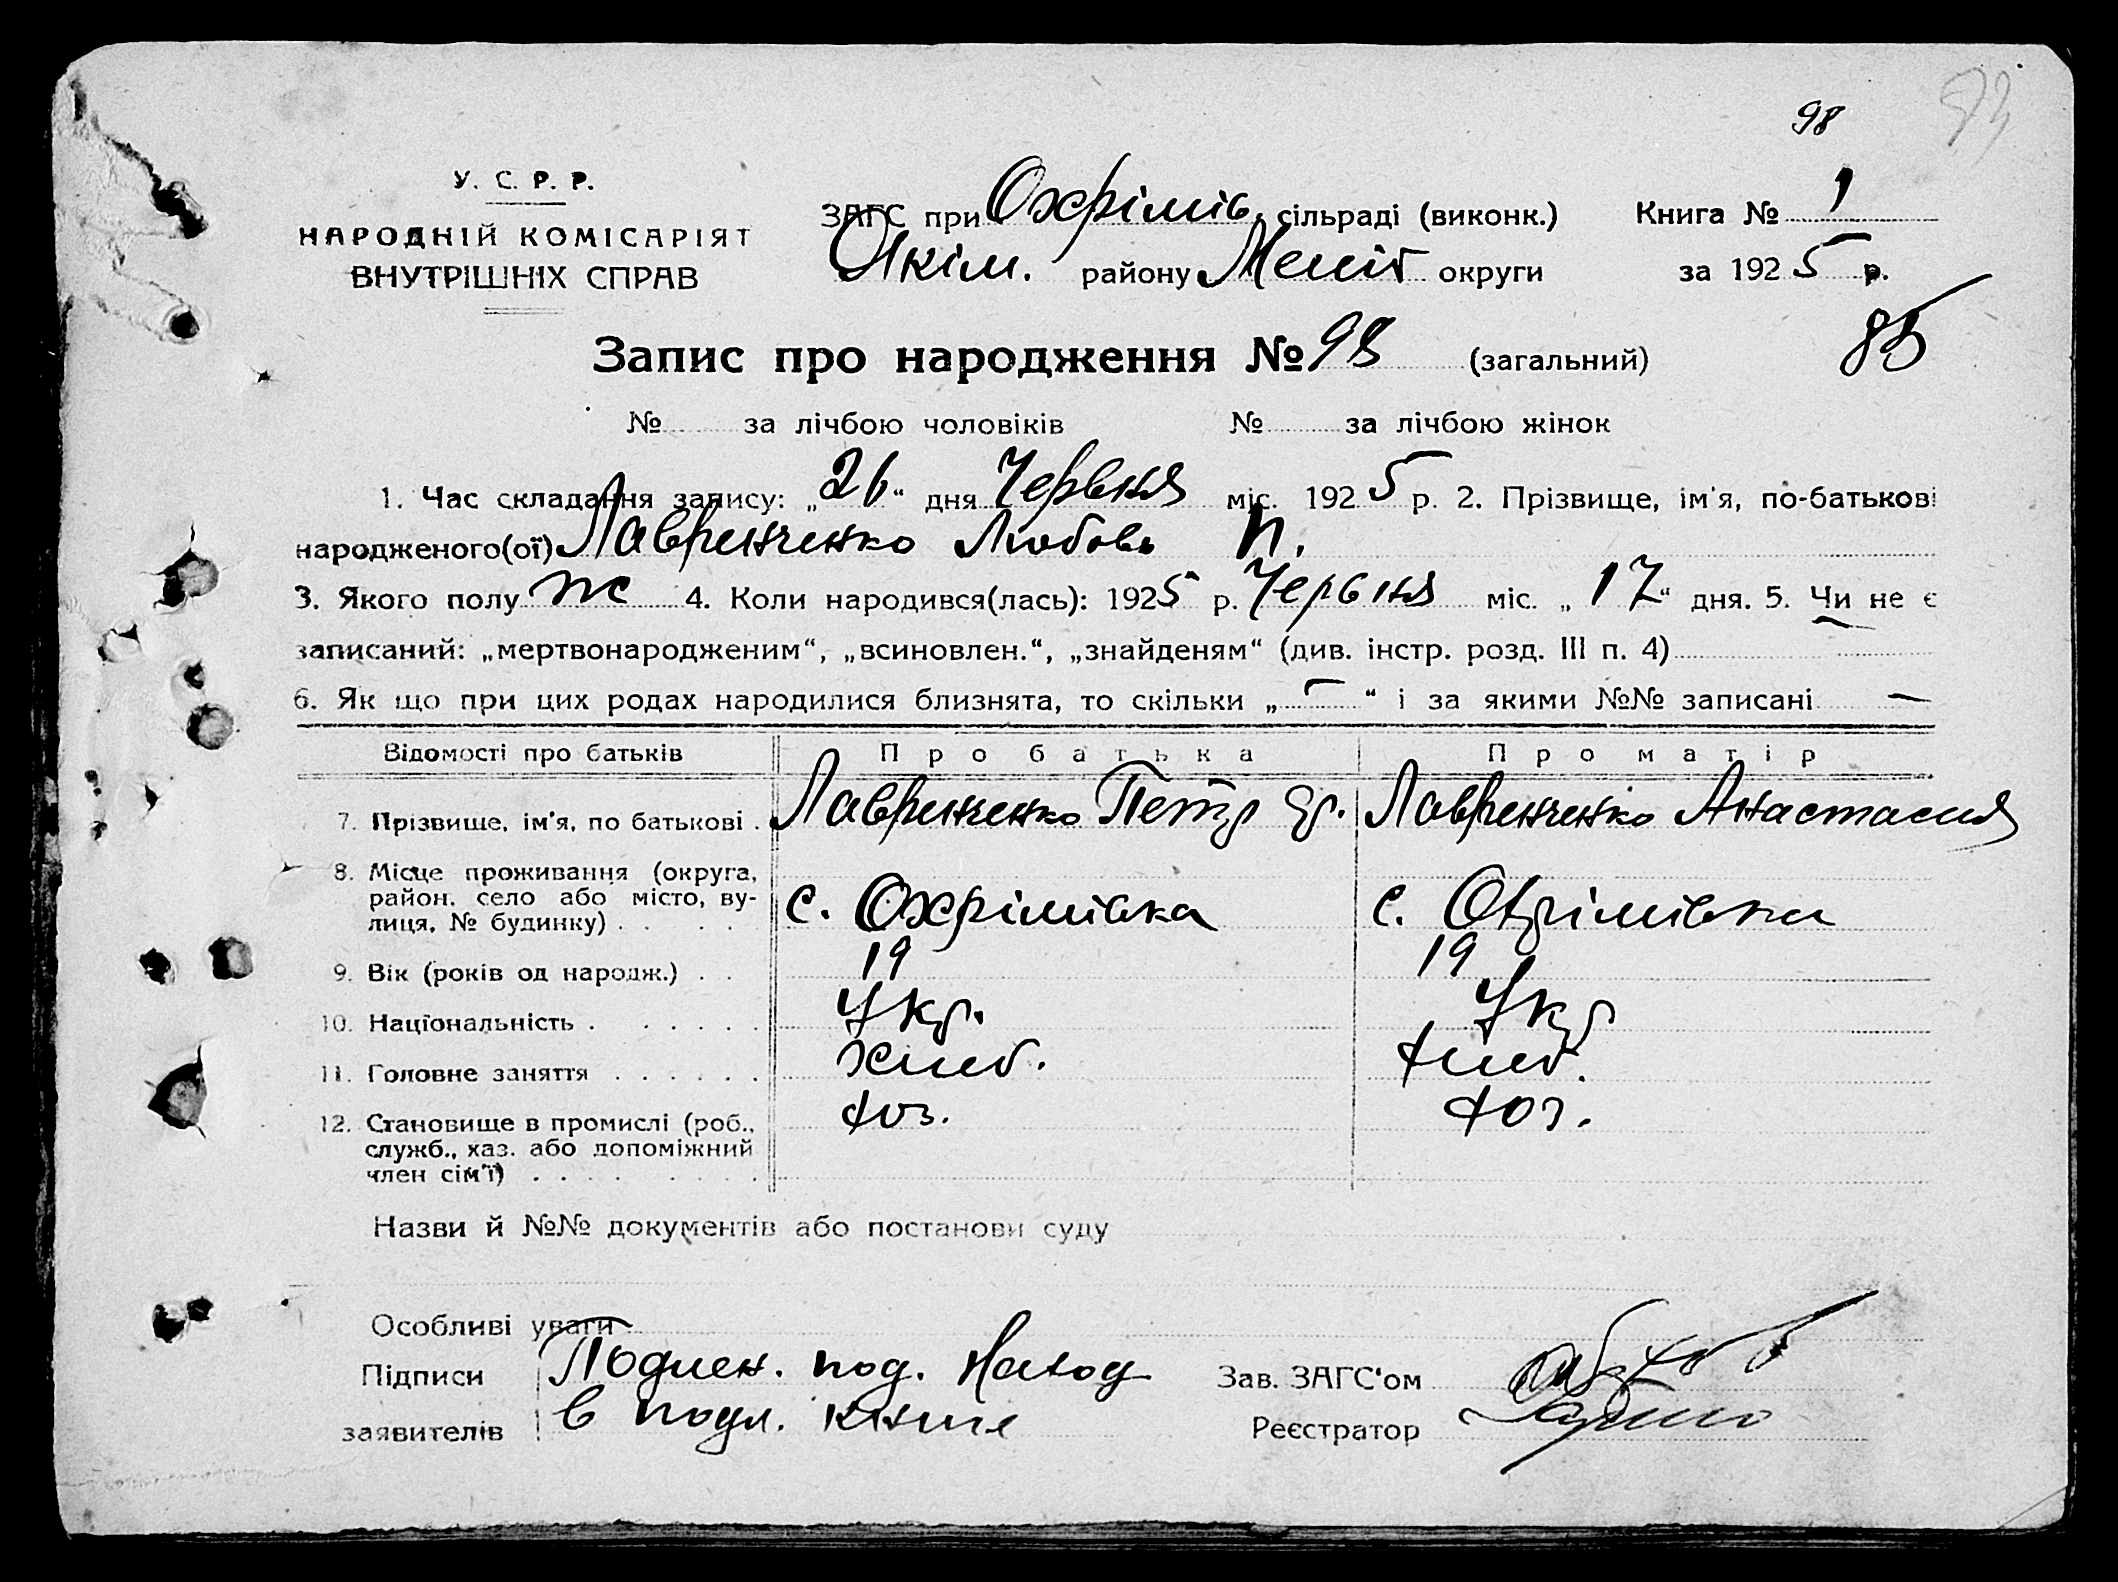 98
93
У. С. Р. Р.
НАРОДНІЙ КОМІСАРІЯТ
ВНУТРІШНІХ СПРАВ
ЗАГС при Охрімів. сільраді (виконк.) Книга № 1
Якім. району Меліт округи за 1925 р.
Запис про народження № 98 (загальний)
85
№ за лічбою чоловіків № за лічбою жінок
1. Час складання запису: „26“ дня Червня міс. 1925 р. 2. Прізвище, ім'я, по-батькові
народженого(ої) Лавринченко Любовь П.
3. Якого полу ж 4. Коли народився(лась): 1925 р. Червня міс. „17“ дня. 5. Чи не є
записаний: „мертвонародженим“, „всиновлен.“, „знайденям“ (див. інстр. розд. III п. 4)
6. Як що при цих родах народилися близнята, то скільки „—“ і за якими №№ записані —
Відомості про батьків Про батька Про матір
7. Прізвище, ім'я, по батькові . Лавринченко Петр Лавринченко Анастасия
8. Місце проживання (округа,
район, село або місто, ву-
лиця, № будинку) . . . . с. Охрімівка с. Охрімівка
9. Вік (років од народж.) . . 19 19
10. Національність . . . . . . Укр. Укр
11. Головне заняття . . . . . . Хліб. Хліб.
12. Становище в промислі (роб., хоз. хоз.
служб., хаз. або допоміжний
член сім'ї) . . . . . . . .
Назви й №№ документів або постанови суду
Особливі уваги
Підписи Подлен. под. Наход Зав. ЗАГС'ом
заявителів в подл. книге Реєстратор